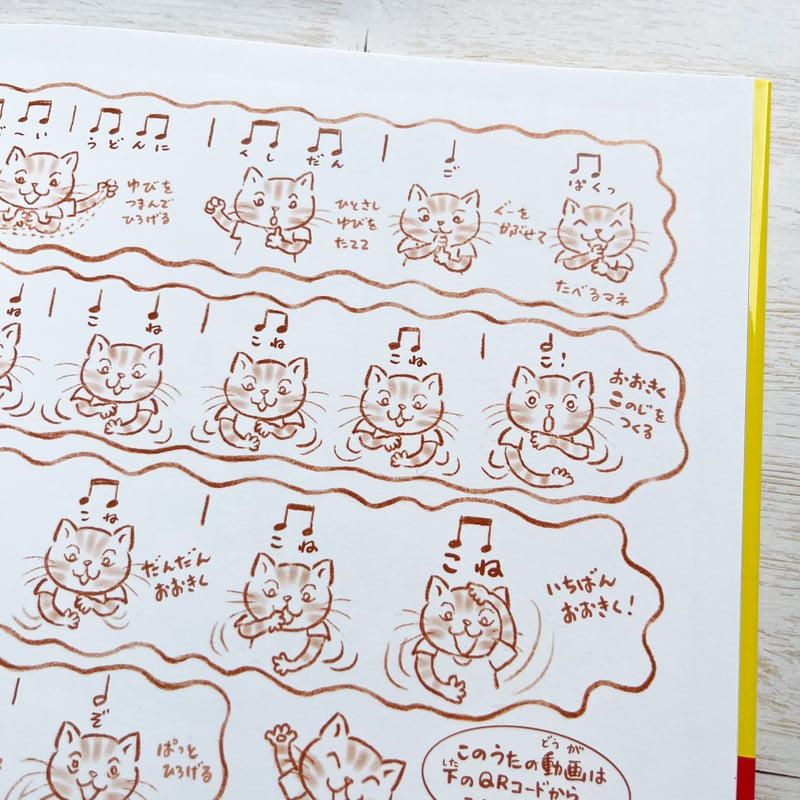 ーい うどんに くし だん ご ぱくっ
ゆびを
つまんで
ひろげる
ひとさし
ゆびを
たてて
ぐーを
かぶせて
たべるマネ
ね こ ね こ ね こ ね こ!
おおきく
このじを
つくる
こ ね こ ね こ ね
だんだん
おおきく
いちばん
おおきく!
ぞ
ぱっと
ひろげる
このうたの動画は
どう が
下のQRコードから
した